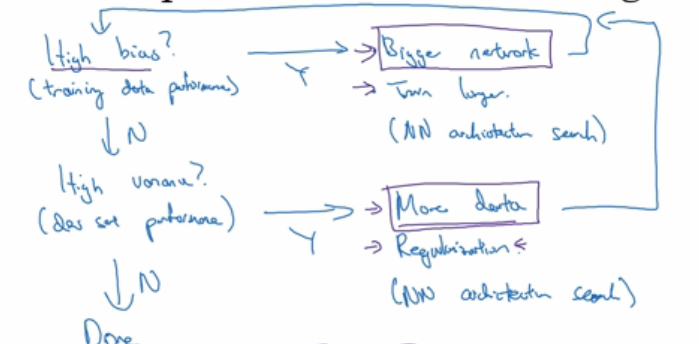 High bias?
(training data performance)
Y
Bigger network
Train longer.
(NN architecture search)
N
High variance?
(dev set performance)
Y
More data
Regularization
(NN architecture search)
N
Done